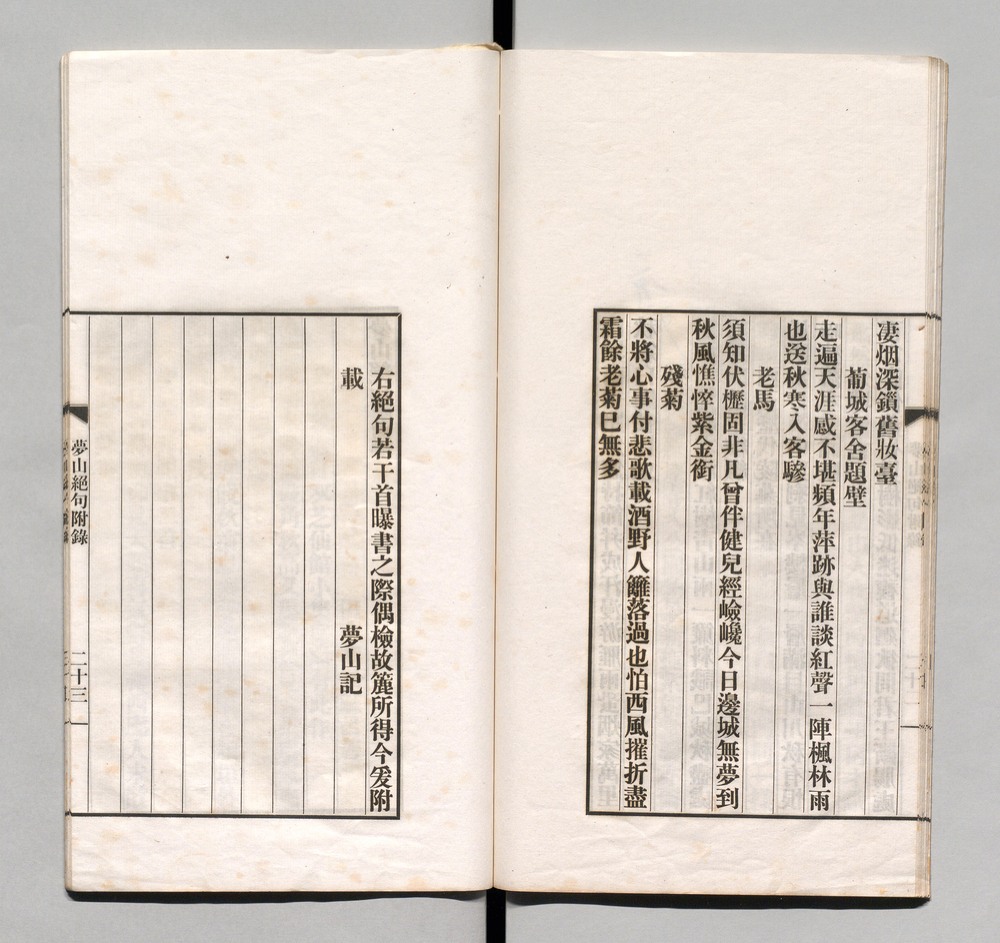 凄烟深鎖舊妝臺
葡城客舍題壁
走遍天涯感不堪頻年萍跡與誰談紅聲一陣楓林雨
也送秋寒入客驂
老馬
須知伏櫪固非凡曾伴健兒經嶮巉今日邊城無夢到
秋風憔悴紫金銜
殘菊
不將心事付悲歌載酒野人籬落過也怕西風摧折盡
霜餘老菊已無多
右絕句若干首曝書之際偶檢故簏所得今爰附
載
夢山記
夢山絕句附錄
二十三